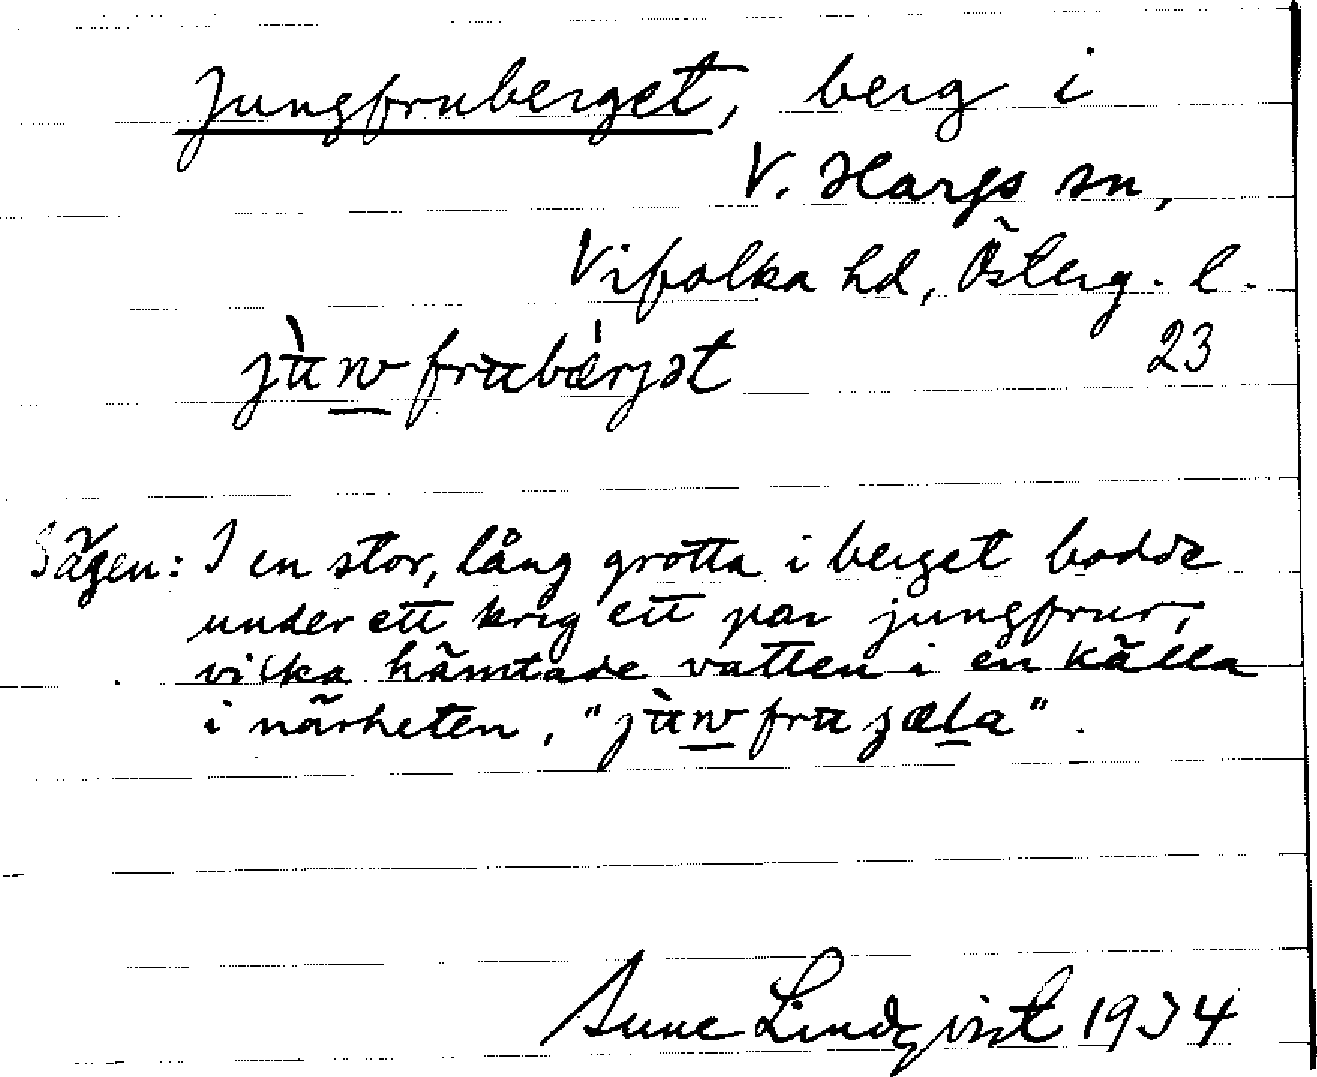 Jungfruberget, berg i
V. Hargs sn,
Vifolka hd, Österg. l.
23
Sägen: I en stor, lång grotta i berget bodde
under ett krig ett par jungfrur,
vilka hämtade vatten i en källa
i närheten,
Sune Lindqvist 1934